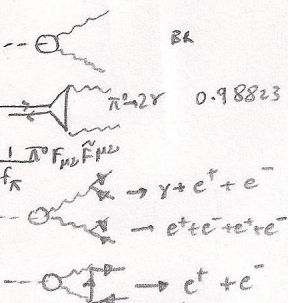 BR
π⁰→2γ 0.98823
1/fπ π⁰ Fμν F̃μν
→ γ + e⁺ + e⁻
→ e⁺+e⁻+e⁺+e⁻
→ e⁺ + e⁻